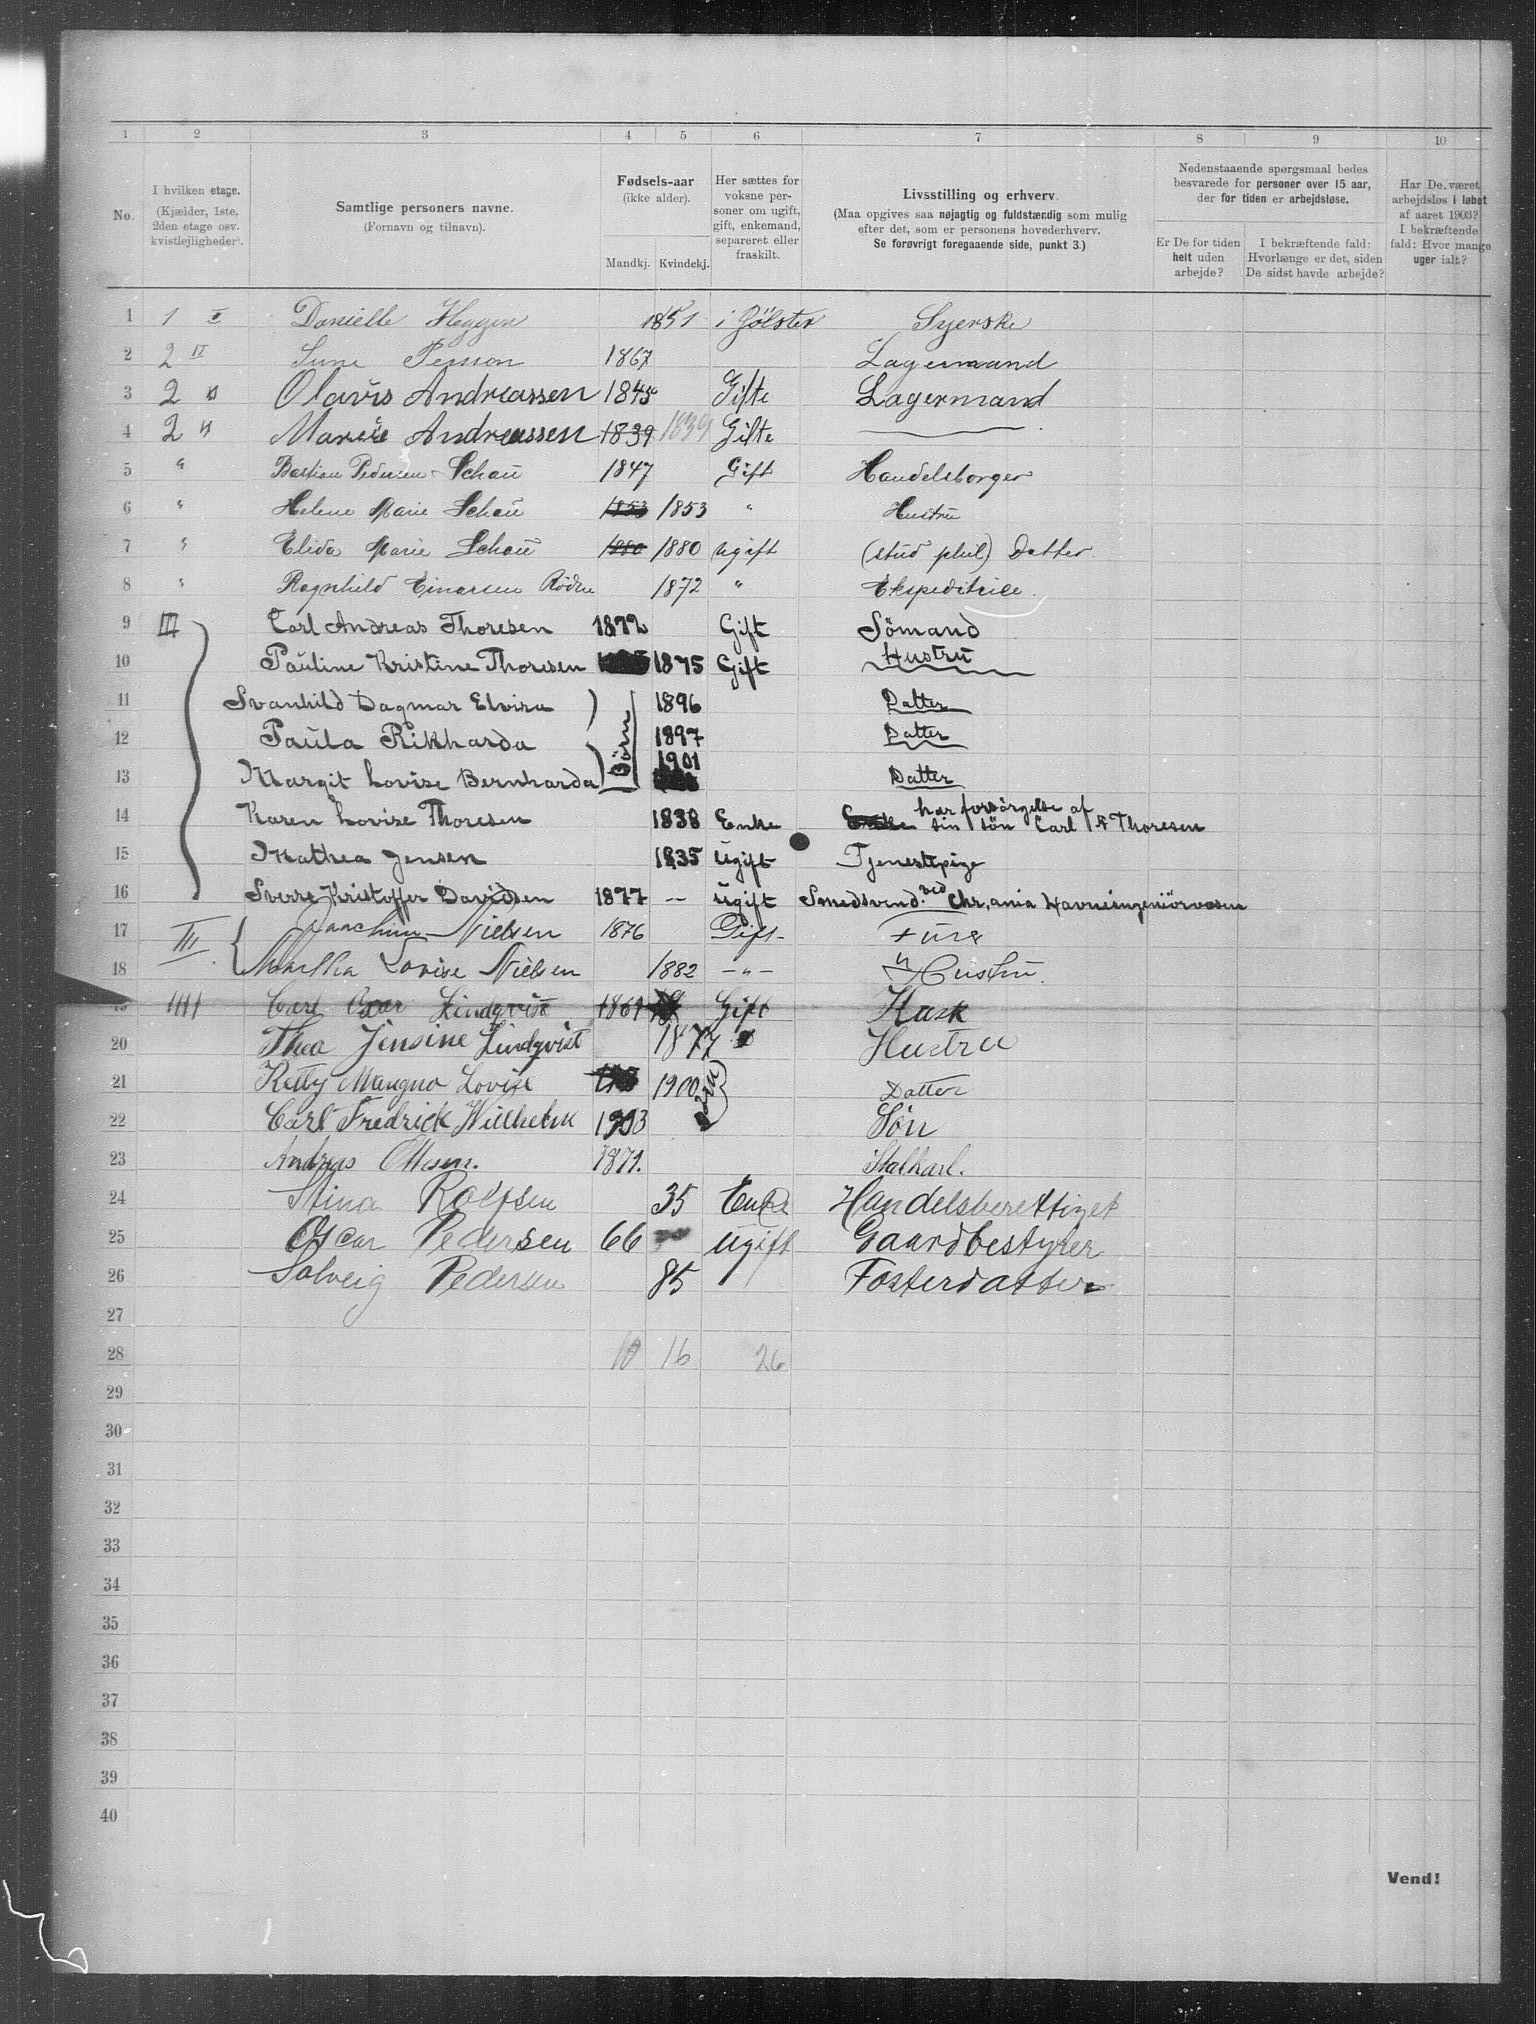 1 2 3 4 5 6 7 8 9 10
No. I hvilken etage. (Kjælder, 1ste, 2den etage osv. kvistlejligheder). Samtlige personers navne. (Fornavn og tilnavn). Fødsels-aar (ikke alder). Mandkj. Kvindekj. Her sættes for voksne personer om ugift, gift, enkemand, separeret eller fraskilt. Livsstilling og erhverv. (Maa opgives saa nøjagtig og fuldstændig som mulig efter det, som er personens hovederhverv. Se forøvrigt foregaaende side, punkt 3.) Nedenstaaende spørgsmaal bedes besvarede for personer over 15 aar, der for tiden er arbejdsløse. Er De for tiden helt uden arbejde? I bekræftende fald: Hvorlænge er det, siden De sidst havde arbejde? Har De været arbejdsløs i løbet af aaret 1903? I bekræftende fald: Hvor mange uger ialt?
1 1 I Danielle Heggen 1851 i Jölster Syerske
2 2 II Sune Persson 1867 Lagermand
3 2 " Olavis Andreassen 1845 Gifte Lagermand
4 2 " Marie Andreassen 1839 1839 Gifte
5 " Bastian Pedersen Schau 1847 Gift Handelsborger
6 " Helene Marie Schau 1853 1853 " Hustru
7 " Elida Marie Schau 1880 1880 ugift (stud phil) Datter
8 " Ragnhild Einarsen Rödne 1872 " Ekspeditrice
9 III Carl Andreas Thoresen 1872 Gift Sömand
10 Pauline Kristine Thoresen 1875 Gift Hustru
11 Svanhild Dagmar Elvira Börn 1896 Datter
12 Paula Rikharda 1897 Datter
13 Margit Lovise Bernharda 1901 Datter
14 Karen Lovise Thoresen 1838 Enke Enke har forsörgelse af sin sön Carl A Thoresen
15 Mathea Jensen 1835 Ugift Tjenestepige
16 Sverre Kristoffer Davidsen 1877 -- ugift Smedsvend. ved Chr,ania Havneingeniörvæsen
17 III Joachim Nielsen 1876 Gift
18 Martha Lovise Nielsen 1882 -"- Hustru
19 1111 Carl Lindqvist Gift Kusk
20 Thea Jensine Lindqvist 1877 " Hustru
21 Ketty Lovise 1900 Börn Datter
22 Carl Fredrick Wilhelm 1903 Sön
23 Andreas Ottesen. 1871. Stalkarl.
24 Stina Rolfsen 35 Enke Handelsberettiget
25 Oscar Pedersen 66 ugift Gaardbestyrer
26 Solveig Pedersen 85 Fosterdatter
27
28 10 16 26
29
30
31
32
33
34
35
36
37
38
39
40
Vend!